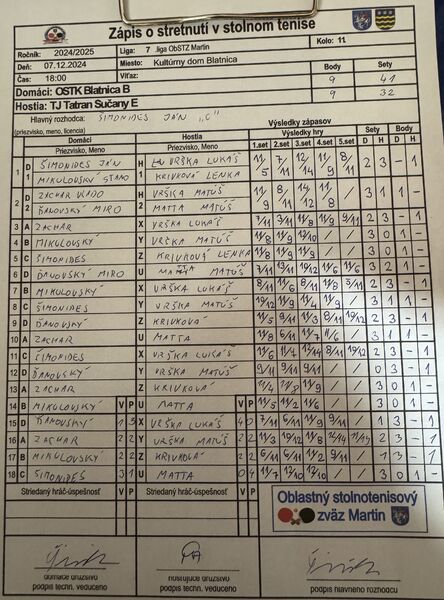 Zápis o stretnutí v stolnom tenise
Ročník: 2024/2025 Liga: 7 .liga ObSTZ Martin Kolo: 11
Deň: 07.12.2024 Miesto: Kultúrny dom Blatnica
Čas: 18:00 Víťaz: Body Sety
Domáci: OSTK Blatnica B 9 41
Hostia: TJ Tatran Sučany E 9 32
Hlavný rozhodca: ŠIMONIDES JÁN "C"
(priezvisko, meno, licencia)
Výsledky zápasov
Domáci Hostia Výsledky hry Sety Body
Priezvisko, Meno Priezvisko, Meno 1.set 2.set 3.set 4.set 5.set D H D H
1 D1 ŠIMONIDES JÁN H1 VRŠKA LUKÁŠ 11/5 7/11 11/8 2 3 - 1
MIKULOVSKÝ STANO KRIVKOVÁ LENKA
2 D2 ZACHAR VLADO H2 VRŠKA MATÚŠ 11/9 8/11 / 3 1 1 -
ĎANOVSKÝ MIRO MATTA MATÚŠ
3 A ZACHAR X VRŠKA LUKÁŠ 7/11 3/11 11/8 11/9 9/11 2 3 - 1
4 B MIKULOVSKÝ Y VRŠKA MATÚŠ 11/8 11/9 12/10 / / 3 0 1 -
5 C ŠIMONIDES Z KRIVKOVÁ LENKA 11/8 11/9 11/9 / / 3 0 1 -
6 D ĎANOVSKÝ MIRO U MATTA MATÚŠ 7/11 11/9 10/12 11/6 11/6 3 2 1 -
7 B MIKULOVSKÝ X VRŠKA LUKÁŠ 8/11 11/6 8/11 11/8 3/11 2 3 - 1
8 C ŠIMONIDES Y VRŠKA MATÚŠ 10/12 11/9 11/4 11/9 / 3 1 1 -
9 D ĎANOVSKÝ Z KRIVKOVÁ 11/5 9/11 11/3 8/11 10/12 2 3 - 1
10 A ZACHAR U MATTA 11/8 6/11 11/7 11/6 / 3 1 1
11 C ŠIMONIDES X VRŠKA LUKÁŠ 11/6 11/4 8/11 10/12 2 3 - 1
12 D ĎANOVSKÝ Y VRŠKA MATÚŠ 9/11 9/11 9/11 / / 0 3 - 1
13 A ZACHAR Z KRIVKOVÁ 11/4 11/9 / / 3 0 1 -
14 B MIKULOVSKÝ V P U MATTA V P 11/5 11/2 11/6 / / 3 0 1 -
15 D ĎANOVSKÝ 1 3 X VRŠKA LUKÁŠ 4 0 7/11 6/11 11/9 9/11 / 1 3 - 1
16 A ZACHAR 2 2 Y VRŠKA MATÚŠ 2 2 11/3 10/12 11/8 2 3 - 1
17 B MIKULOVSKÝ 2 2 Z KRIVKOVÁ 2 2 6/11 11/6 9/11 9/11 / 1 3 - 1
18 C ŠIMONIDES 3 1 U MATTA 0 4 11/7 12/10 12/10 / / 3 0 1 -
Striedaný hráč-úspešnosť V P Striedaný hráč-úspešnosť V P
Oblastný stolnotenisový
zväz Martin
domáce družstvo hosťujúce družstvo
podpis techn. vedúceho podpis techn. vedúceho podpis hlavného rozhodcu